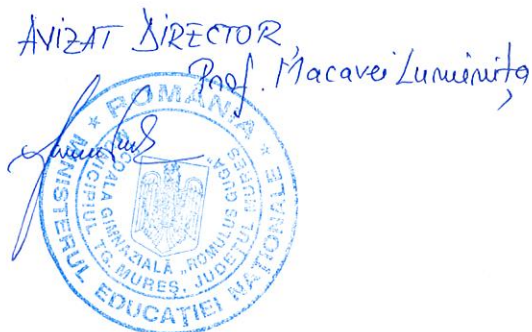 AVIZAT DIRECTOR,
Prof. Macavei Luminița
* ROMÂNIA *
MINISTERUL EDUCAȚIEI NAȚIONALE
ȘCOALA GIMNAZIALĂ „ROMULUS GUGA"
MUNICIPIUL TG. MUREȘ, JUDEȚUL MUREȘ